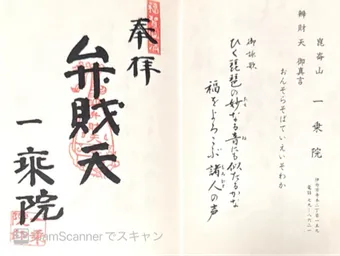 奉拝
弁財天
一乗院
CamScannerでスキャン
崑崙山 一乗院
辨財天 御真言
おんそらそばていえいそわか
御詠歌
ひく琵琶の妙なる音にも似たるかな
福をよろこぶ 諸人の声